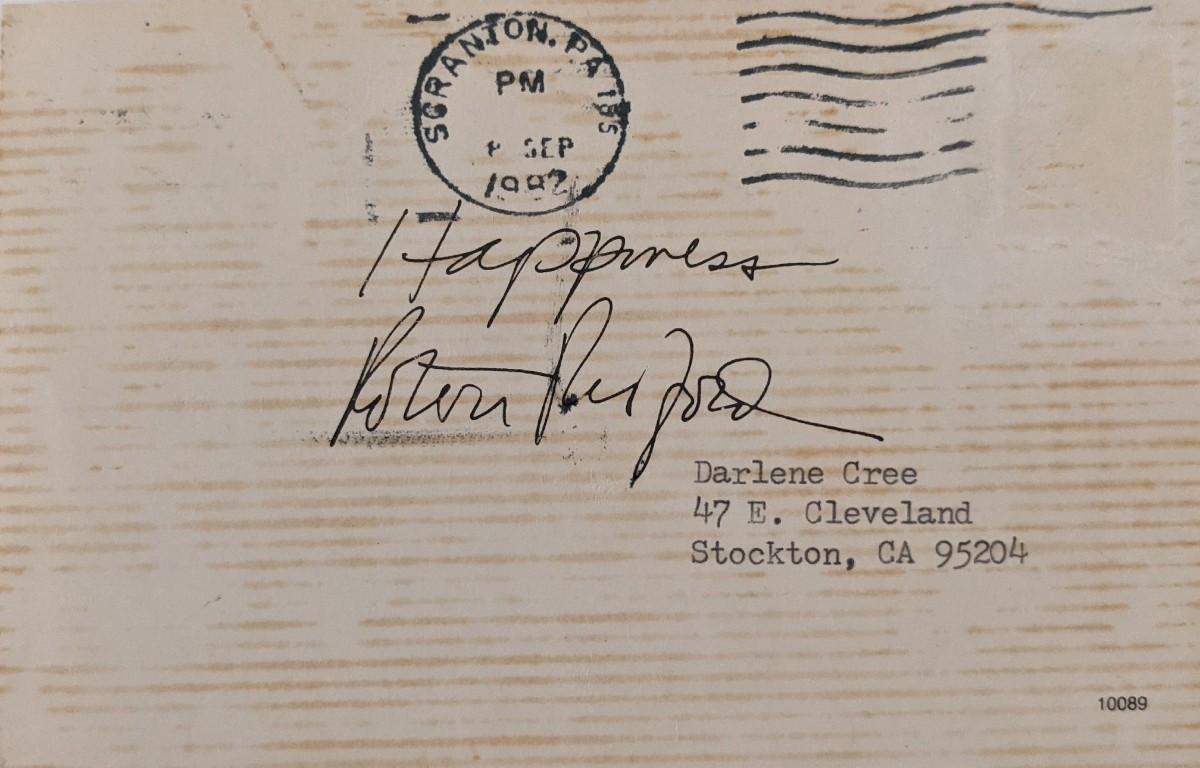 SCRANTON, PA 185
PM
SEP
1982
Happiness
Robert Redford
Darlene Cree
47 E. Cleveland
Stockton, CA 95204
10089